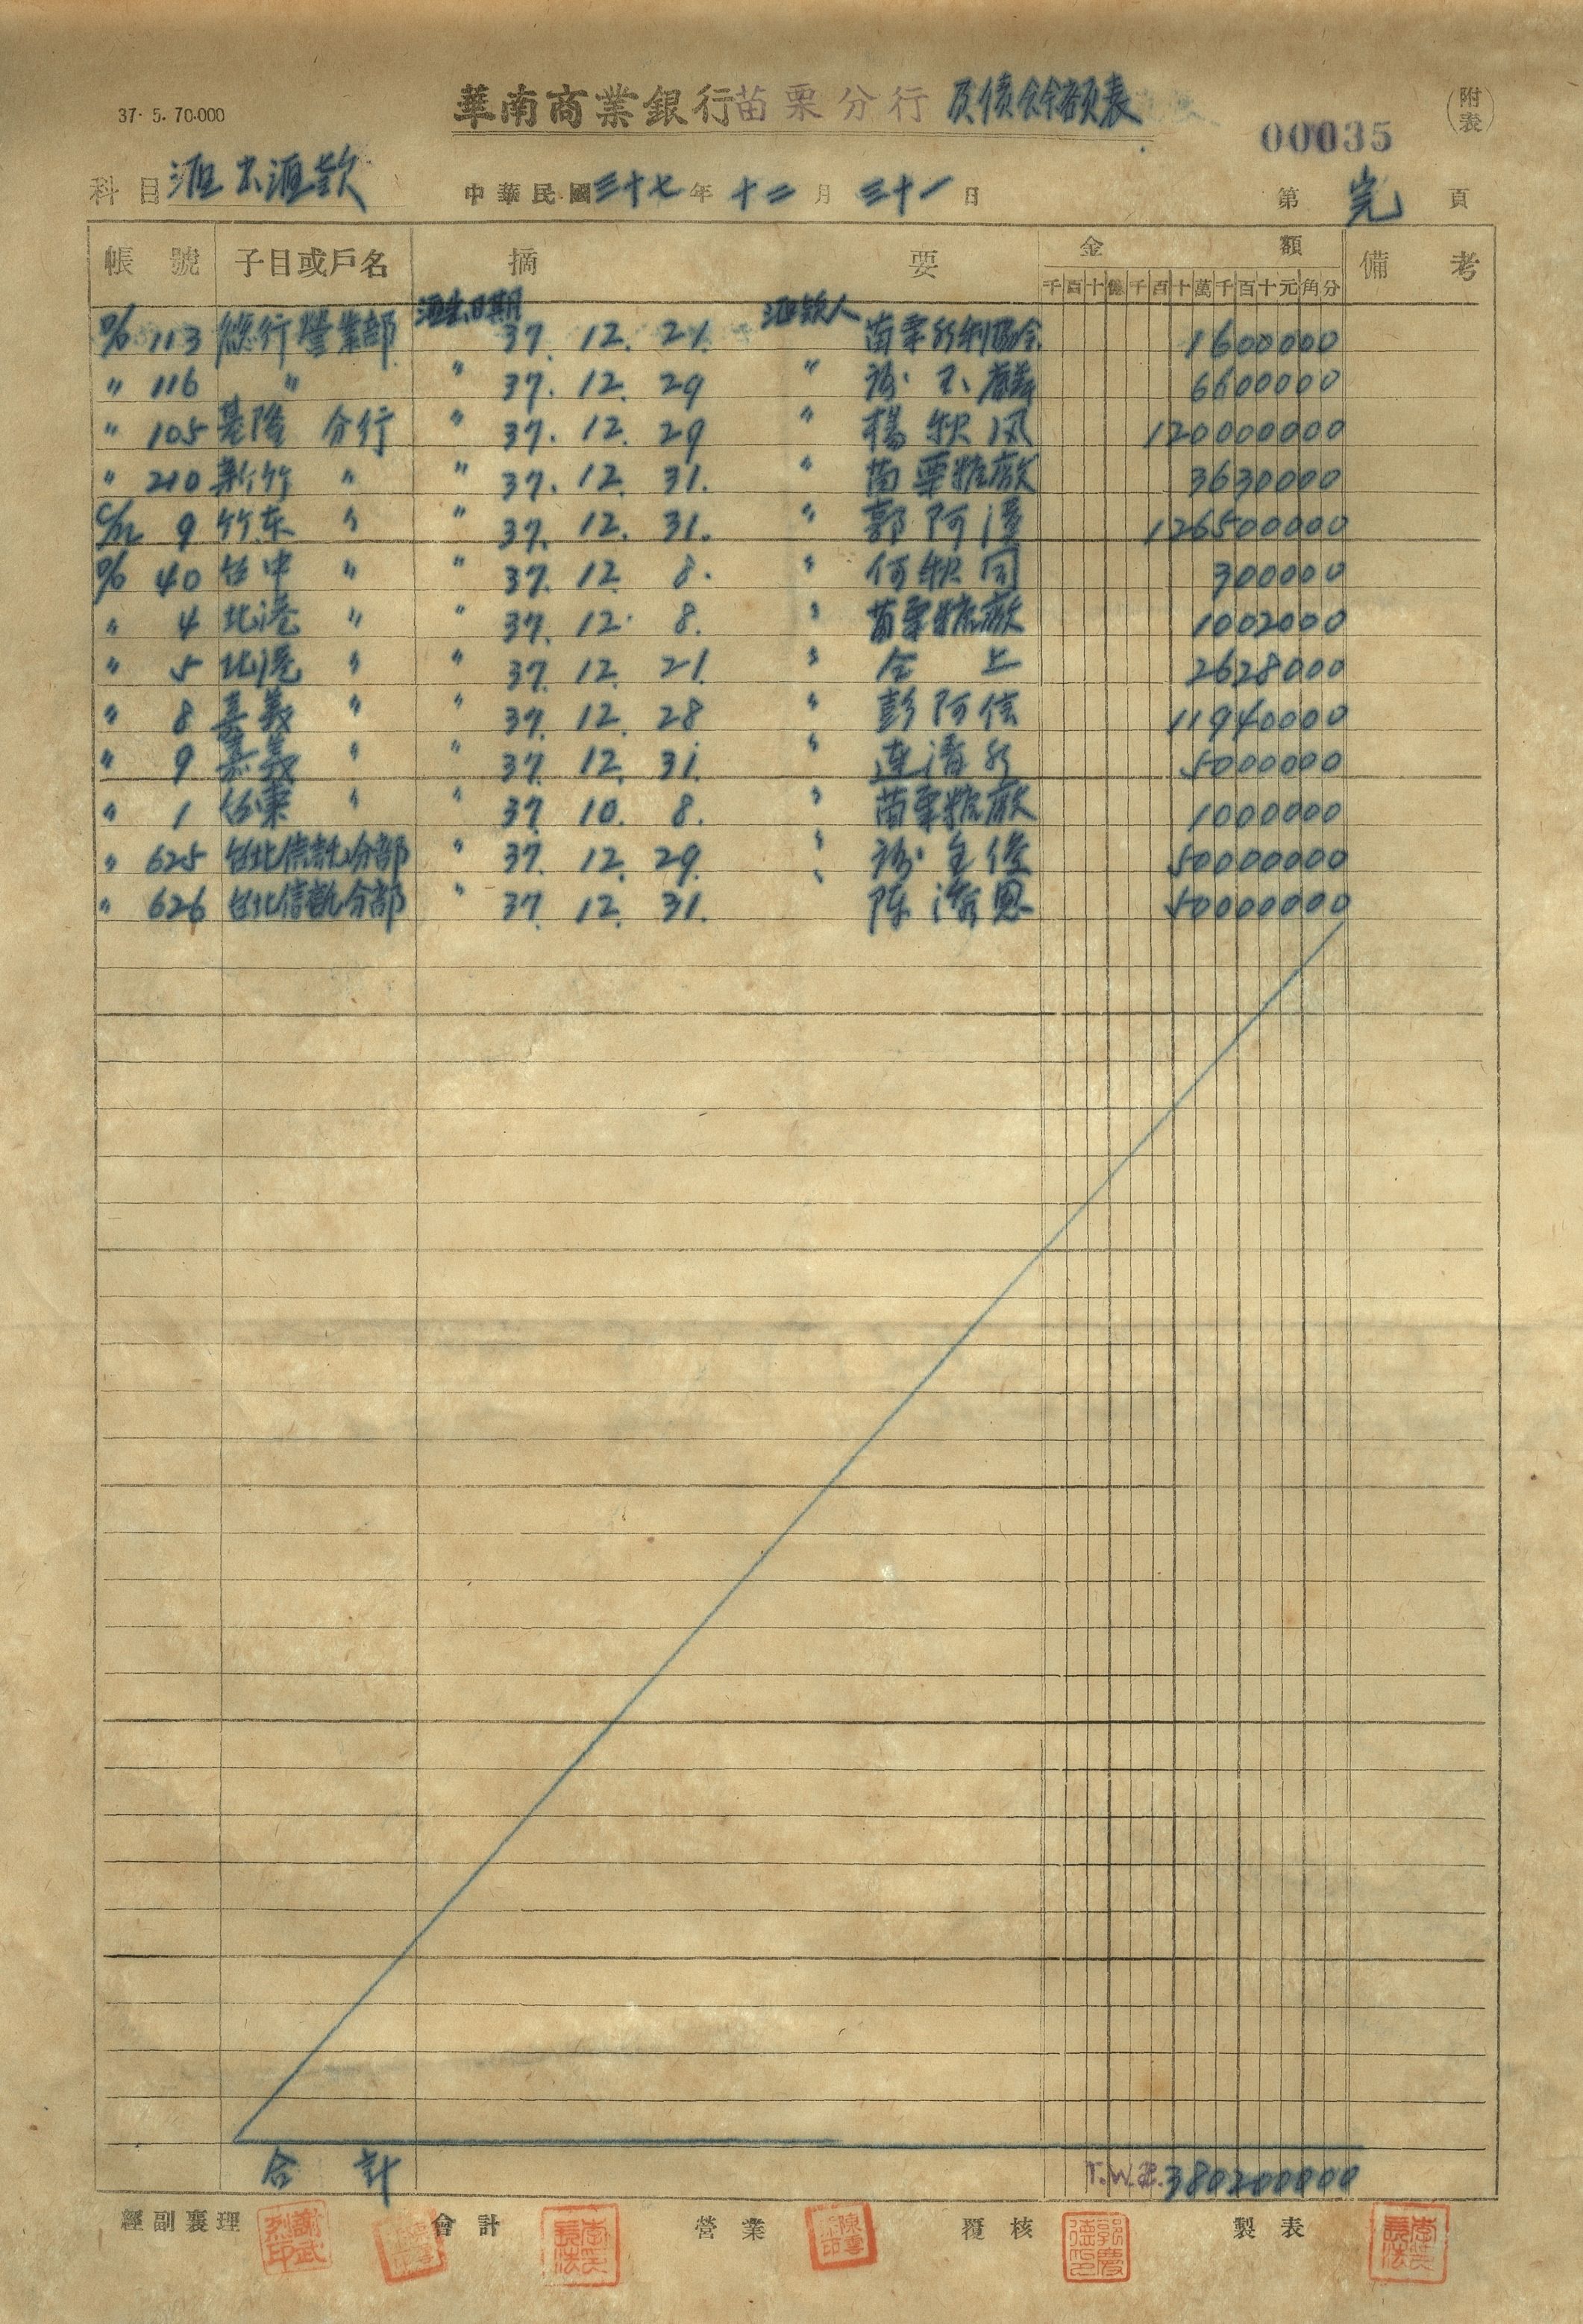 37. 5. 70.000
華南商業銀行苗栗分行 負債餘額表
(附表)
00035
科目 滙出滙款 中華民國三十七年十二月三十一日 第 完 頁
帳號 子目或戶名 摘要 金額 備考
千百十億千百十萬千百十元角分
滙出日期 滙款人
113 總行營業部 37. 12. 21. 1600000
〃 116 〃 〃 37. 12. 29 〃 6600000
〃 105 基隆分行 〃 37. 12. 29 〃 楊秋風 120000000
〃 210 新竹 〃 〃 37. 12. 31. 〃 苗栗糖廠 3630000
9 竹东 〃 〃 37. 12. 31. 〃 郭阿漢 126500000
40 台中 〃 〃 37. 12 8. 〃 何秋同 300000
〃 4 北港 〃 〃 37. 12. 8. 〃 苗栗糖廠 1002000
〃 5 北港 〃 〃 37. 12. 21. 〃 仝上 2628000
〃 8 嘉義 〃 〃 37. 12. 28 〃 彭阿信 11940000
〃 9 嘉義 〃 〃 37. 12. 31. 〃 連清 5000000
〃 1 台東 〃 〃 37 10. 8. 〃 苗栗糖廠 1000000
〃 625 台北信託分部 〃 37. 12. 29. 〃 50000000
〃 626 台北信託分部 〃 37 12. 31. 〃 陳 恩 50000000
合計 T.W.$.380200000
經副襄理 會計 營業 覆核 製表